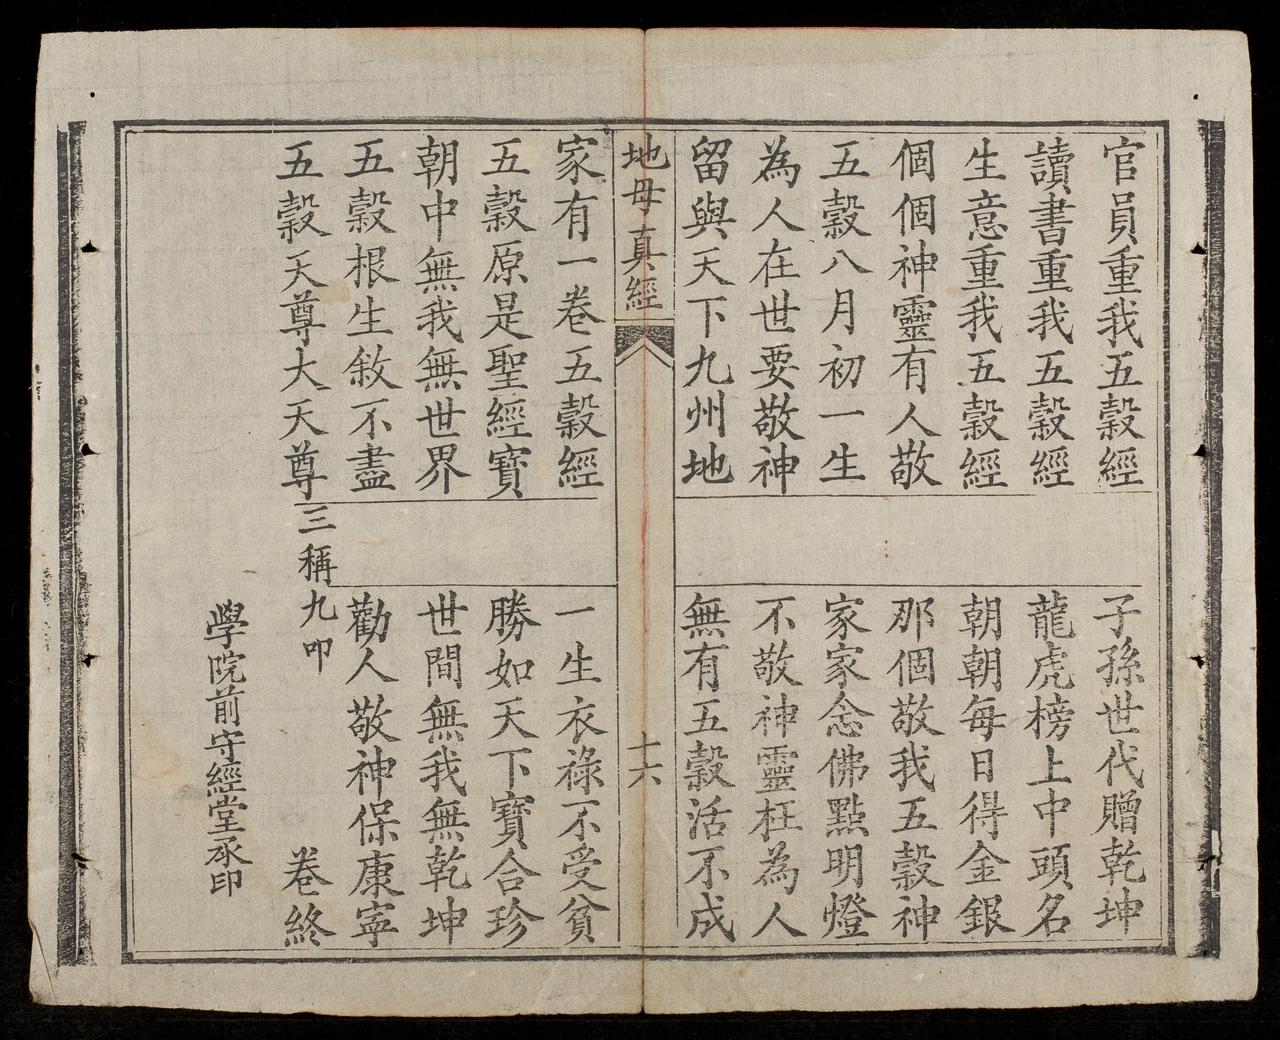 官員重我五穀經 子孫世代贈乾坤
讀書重我五穀經 龍虎榜上中頭名
生意重我五穀經 朝朝每日得金銀
個個神靈有人敬 那個敬我五穀神
五穀八月初一生 家家念佛點明燈
為人在世要敬神 不敬神靈枉為人
留與天下九州地 無有五穀活不成
地母真經 十六
家有一卷五穀經 一生衣祿不受貧
五穀原是聖經寶 勝如天下寶合珍
朝中無我無世界 世間無我無乾坤
五穀根生敘不盡 勸人敬神保康寧
五穀天尊大天尊 三稱九叩 卷終
學院前守經堂承印